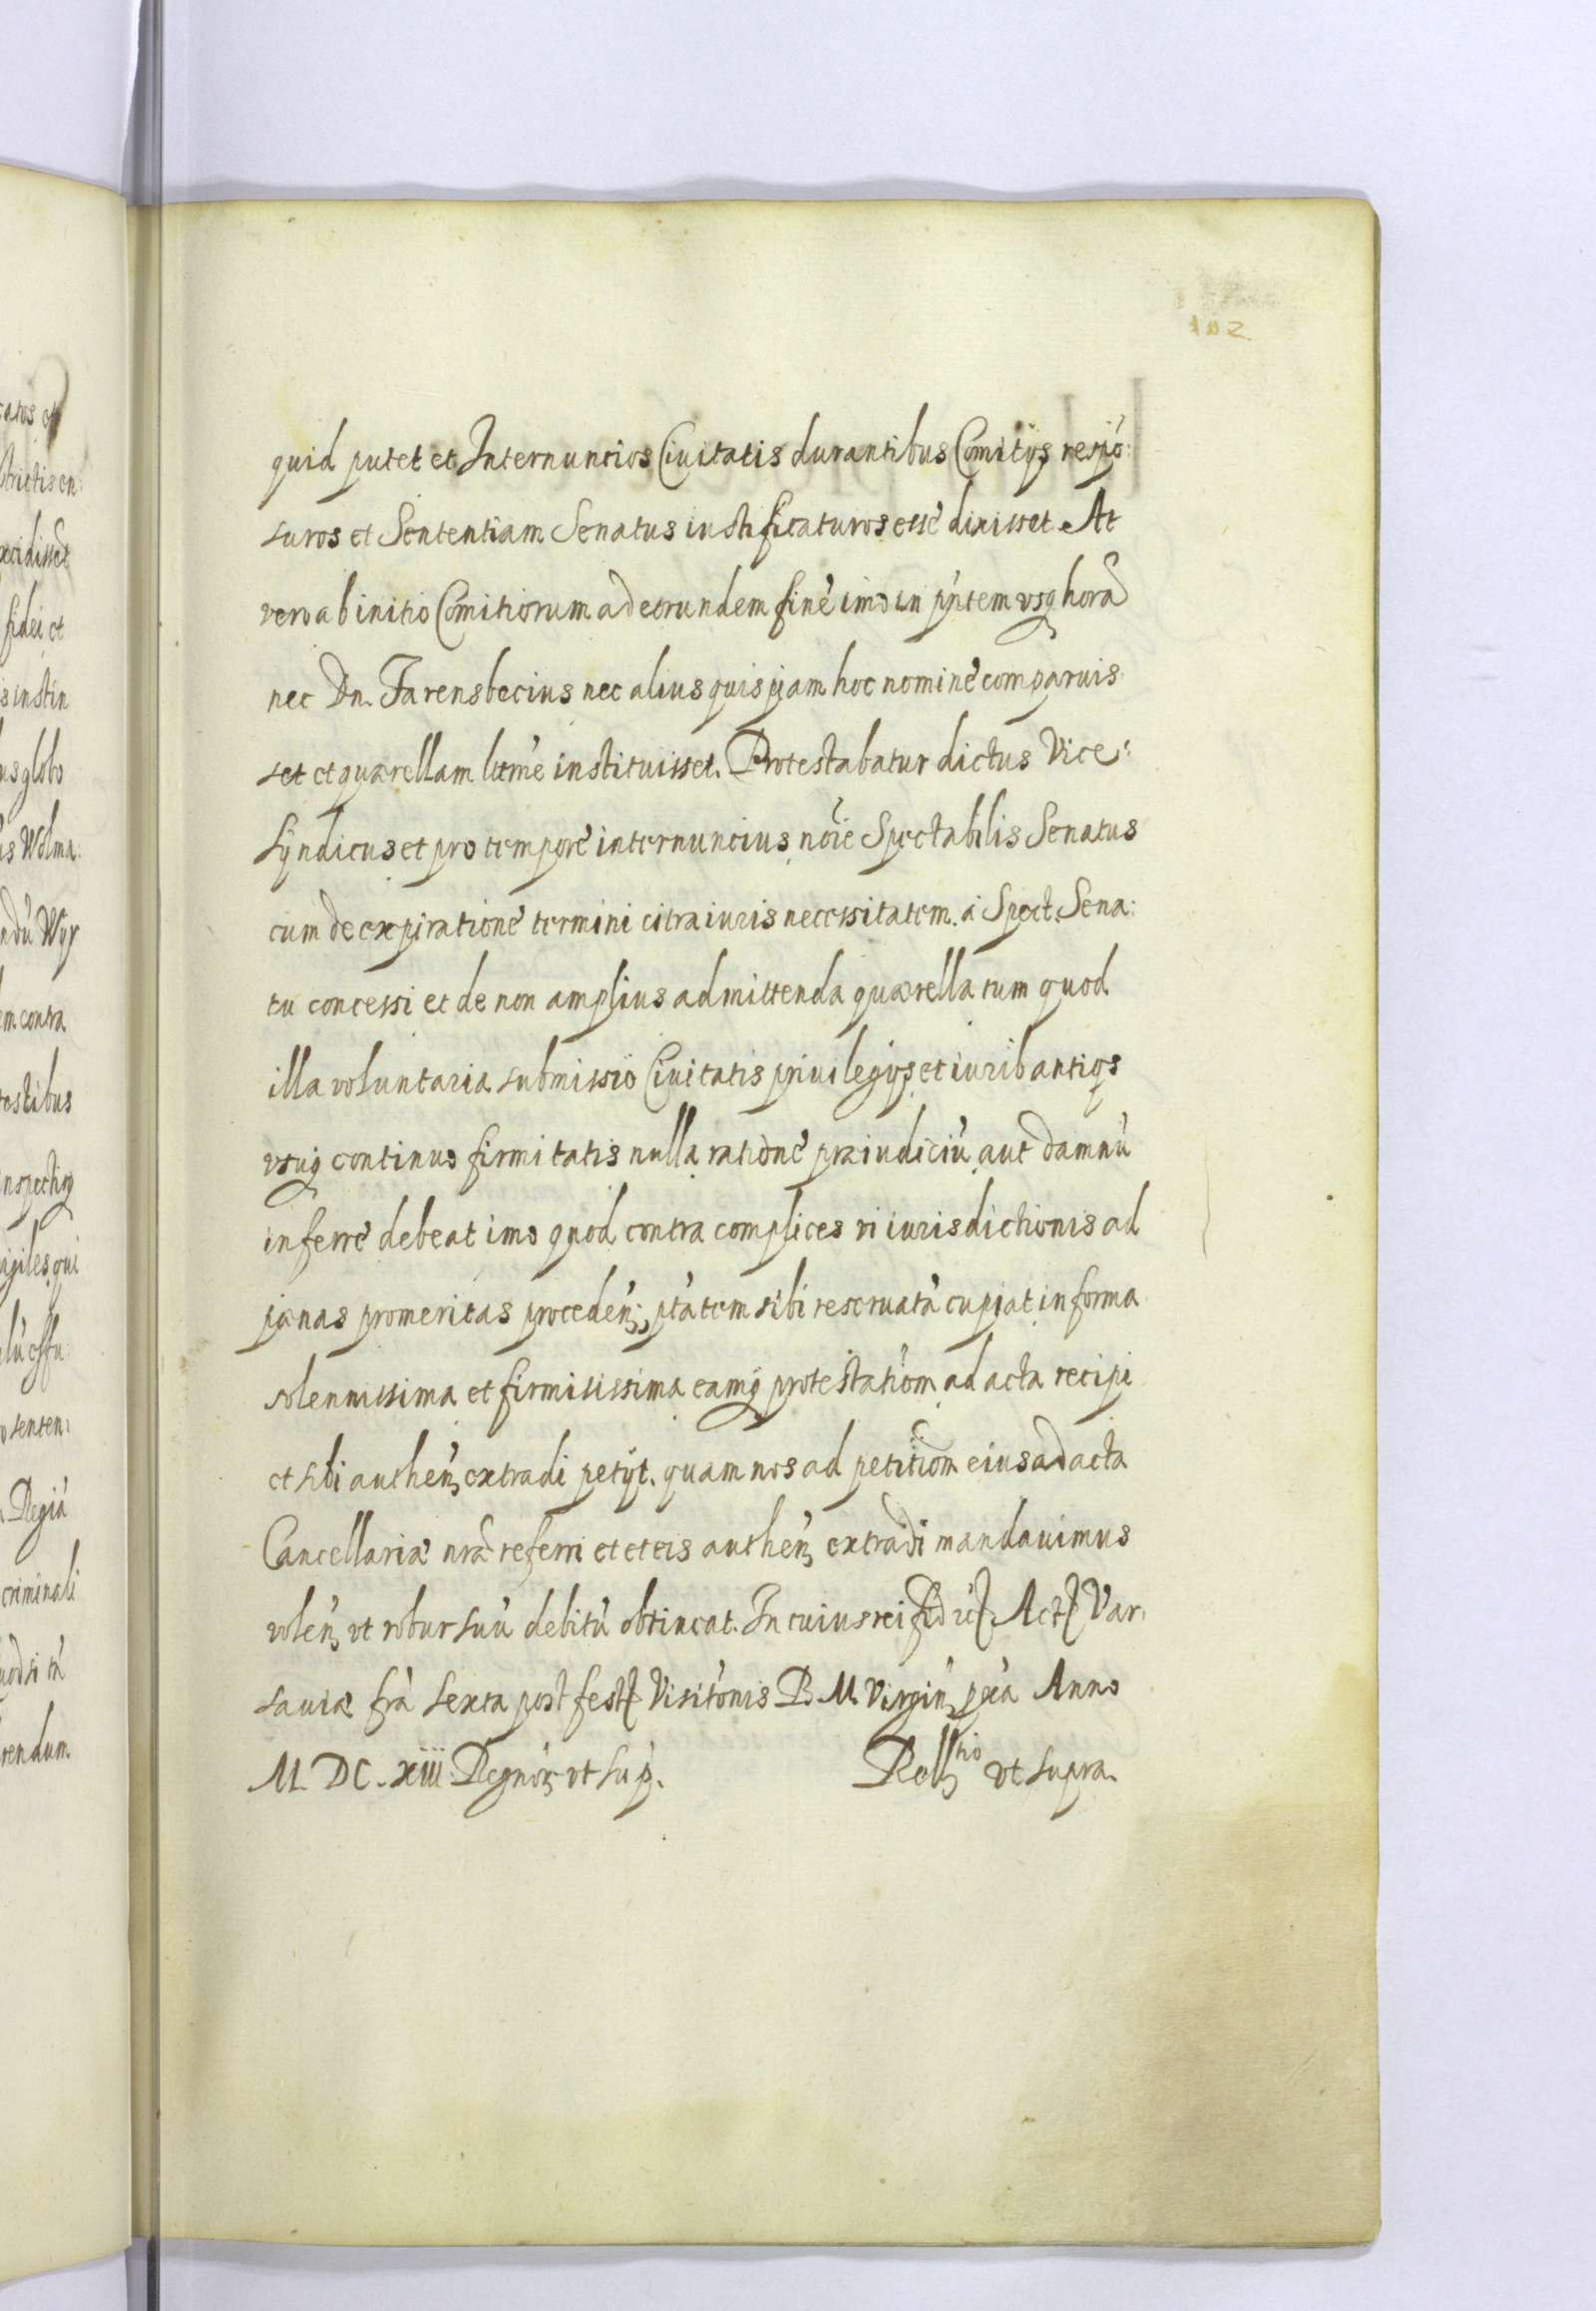 102
quid putet et Internuncios Ciuitatis durantibus Comitijs respō:
suros et Sententiam Senatus iustificaturos esse dixisset. At
vero ab initio Comitiorum ad eorundem finē imo in pñtem vsq horā
nec Dn. Farensbecius nec alius quispiam hoc nomine comparuis:
set et quærellam ltme instituisset. Protestabatur dictus Vice:
Syndicus et pro tempore internuncius, noīe Spectabilis Senatus
cum de expiratione termini citra iuris necessitatem. à Spect. Sena:
tu concessi et de non amplius admittenda quærella tum quod
illa voluntaria submissio Ciuitatis priuilegijs et iurib antiqs
vsuq continuo firmitatis nulla ratione præiudiciū aut damnū
inferre debeat imo quod contra complices vi iurisdictionis ad
pænas promeritas proceden; ptātem sibi reseruatā cupiat in forma
solennissima et firmisissima eamq protestatiom ad acta recipi
et sibi authen extradi petijt. quam nos ad petitiom eius ad acta
Cancellariæ nræ referri et eteis authen extradi mandauimus
volen vt robur suū debitū obtineat. In cuius rei fid Act Var:
sauiæ fra sexta post fest Visitōnis B. M. Virgin pxa Anno
M. DC. xiii Regnor vt sup. Rell tio vt supra.